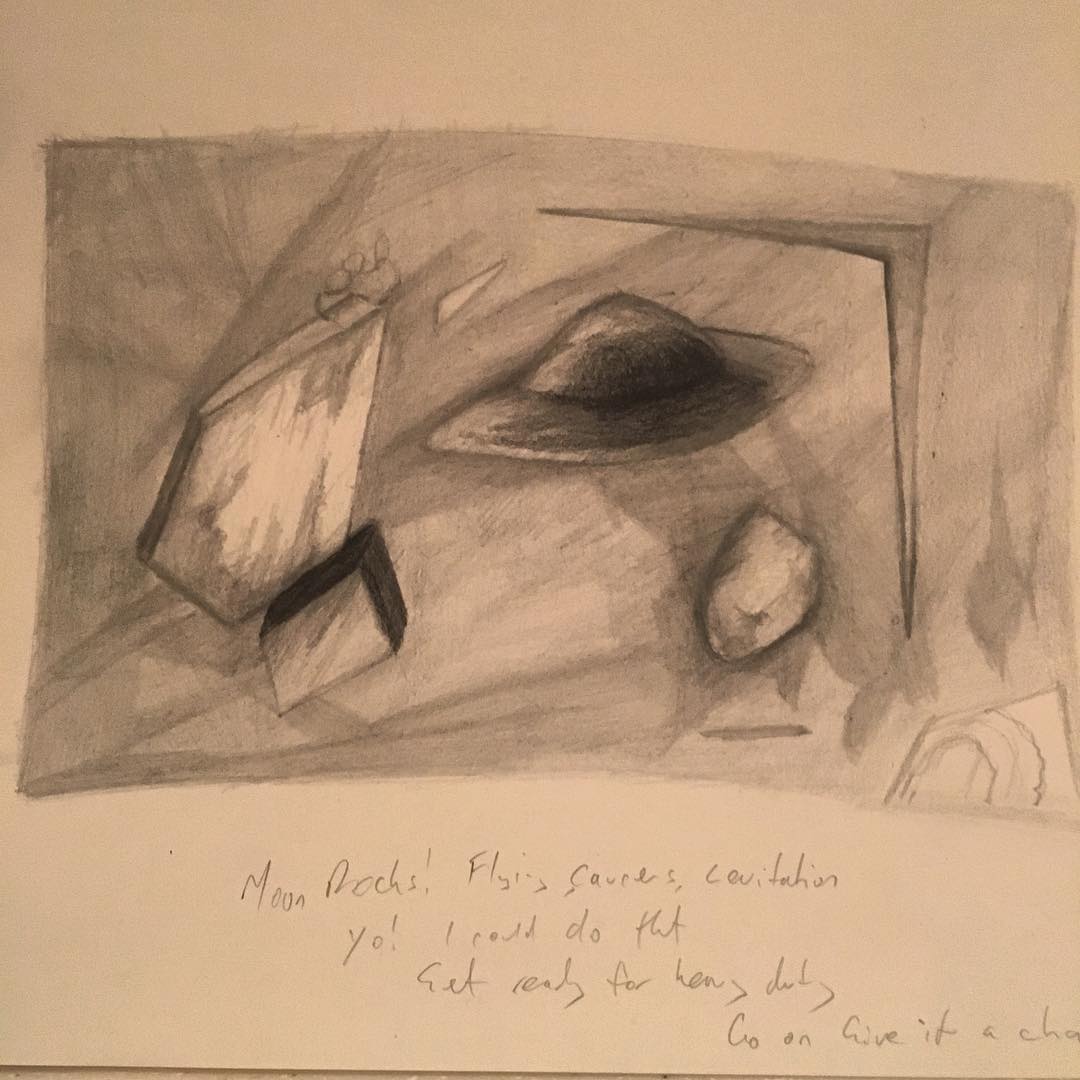 Moon Rocks! Flying Saucers, Levitation
Yo! I could do that
Get ready for heavy duty
Go on Give it a cha